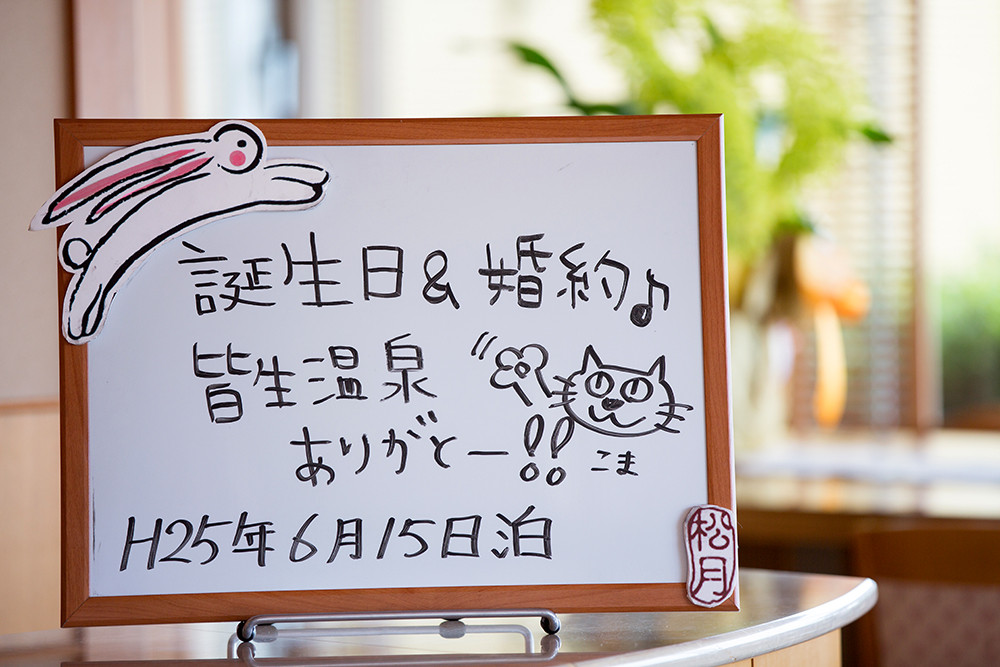 誕生日&婚約♪
皆生温泉
ありがとー!!
こま
H25年6月15日泊
松月